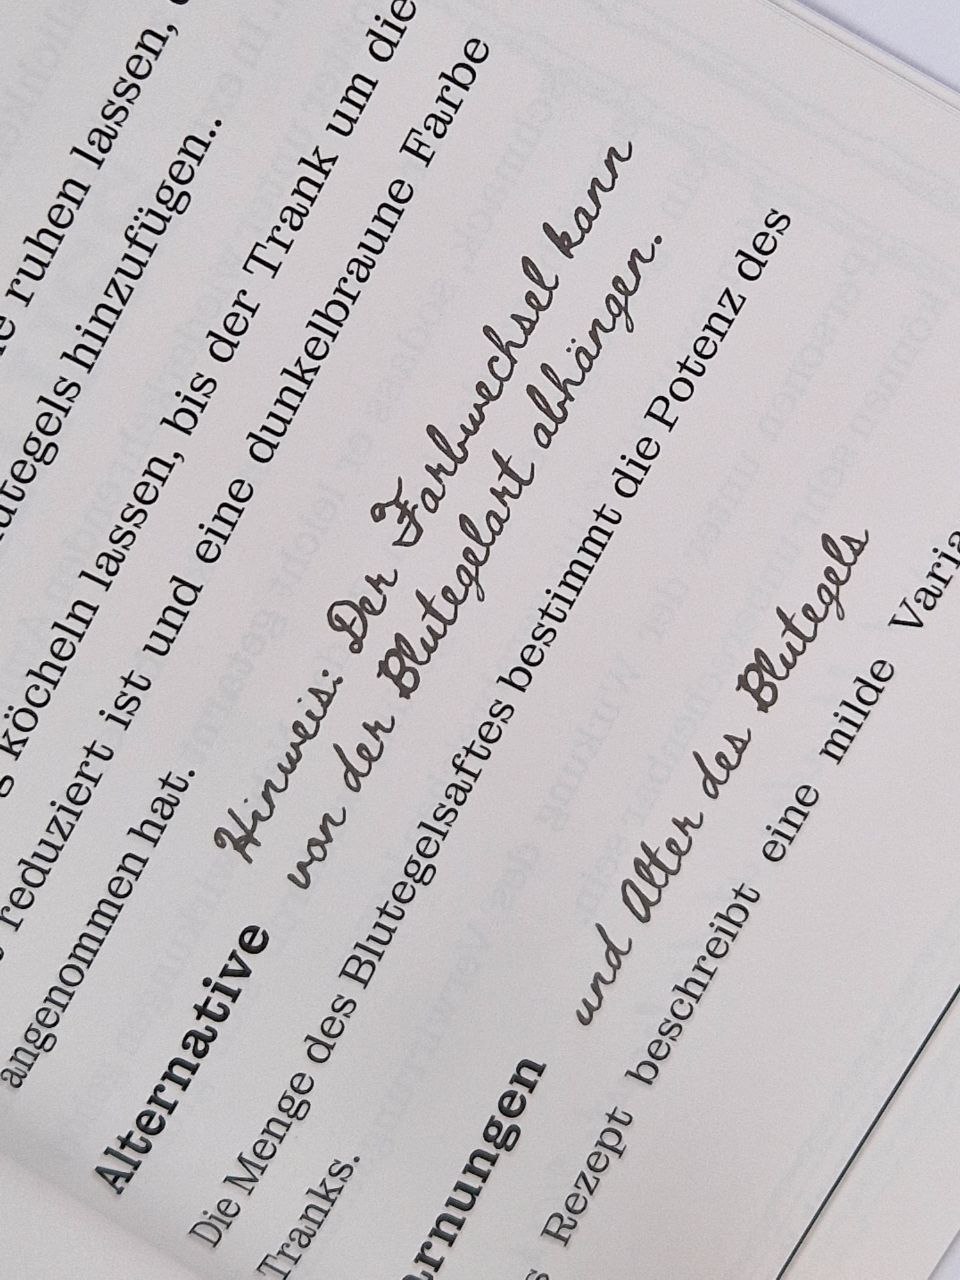 ruhen lassen,
hinzufügen..
köcheln lassen, bis der Trank um die
reduziert ist und eine dunkelbraune Farbe
angenommen hat.
Hinweis: Der Farbwechsel kann
von der Blutegelart abhängen.
Alternative
Die Menge des Blutegelsaftes bestimmt die Potenz des
Tranks.
und Alter des Blutegels
Rezept beschreibt eine milde